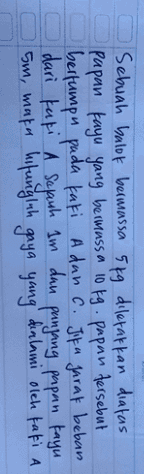 Sebuah balok bermassa 5 kg diletakkan diatas
papan kayu yang bermassa 10 kg. papan tersebut
bertumpu pada kaki A dan C. Jika jarak beban
dari kaki A sejauh 1m dan panjang papan kayu
5m, maka hitunglah gaya yang dialami oleh kaki A